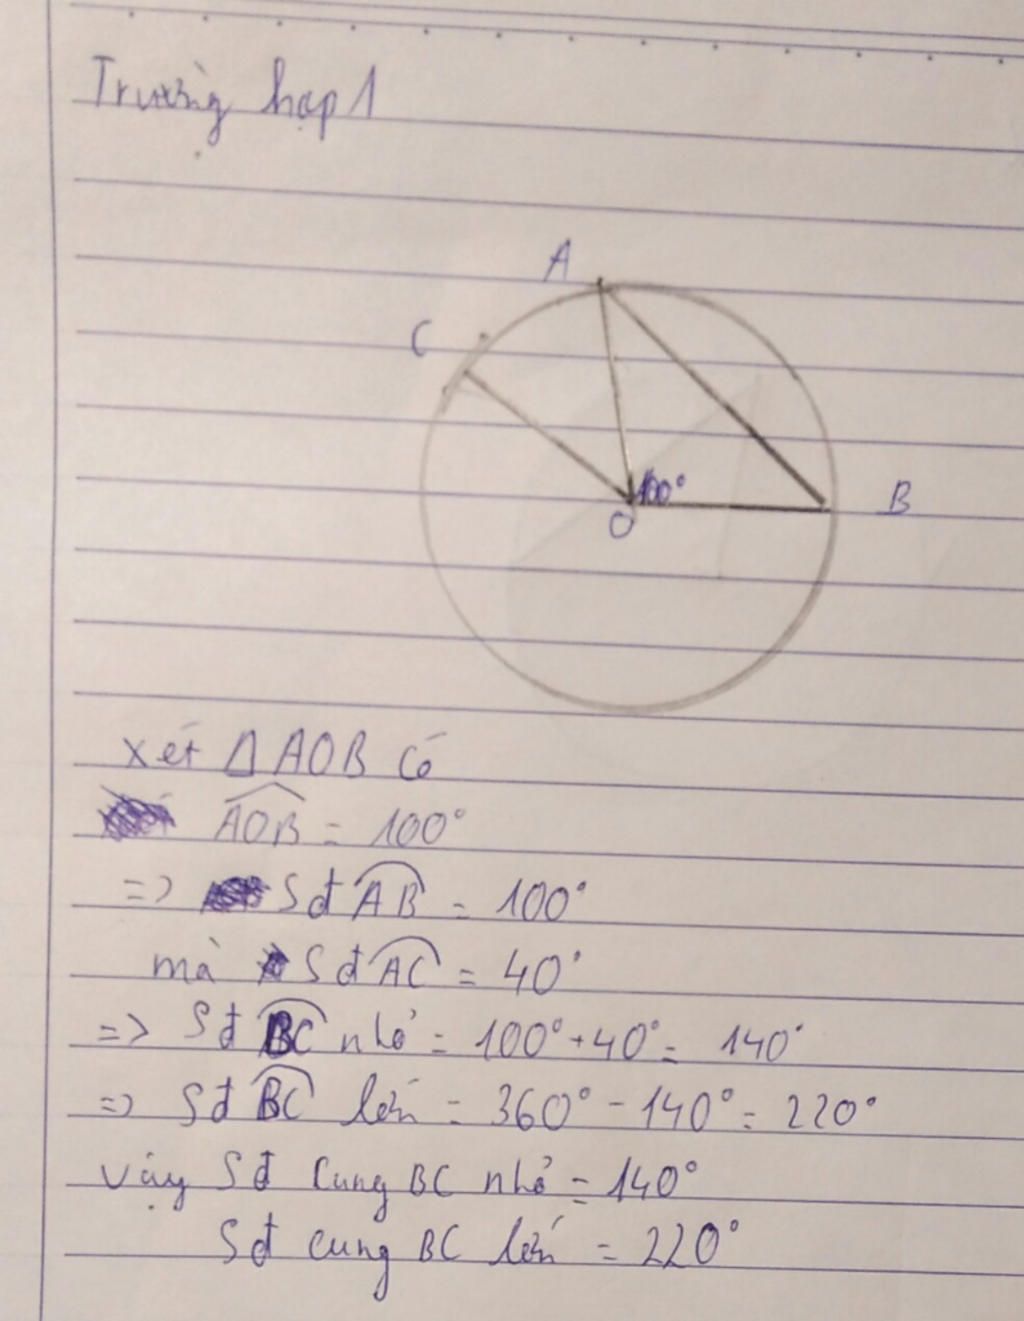 Trường hợp 1
A
C
100°
B
O
xét Δ AOB có
AOB = 100°
=> Sđ AB = 100°
mà Sđ AC = 40°
=> Sđ BC nhỏ = 100° + 40° = 140°
=> Sđ BC lớn = 360° - 140° = 220°
vậy Sđ Cung BC nhỏ = 140°
Sđ cung BC lớn = 220°